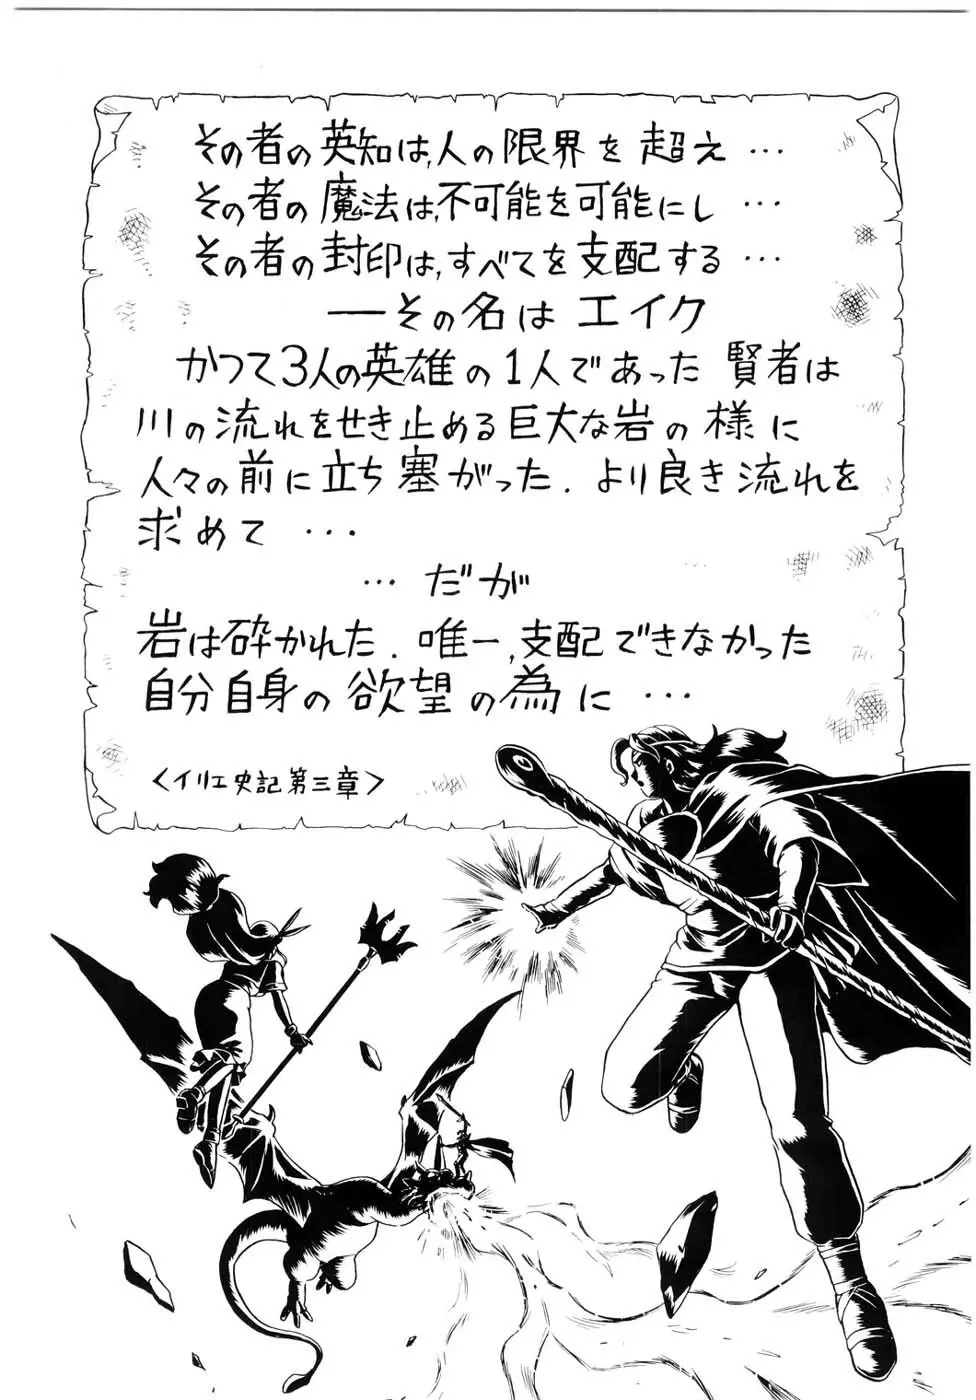 その者の英知は、人の限界を超え…
その者の魔法は、不可能を可能にし…
その者の封印は、すべてを支配する…
―その名はエイク
かつて3人の英雄の1人であった賢者は
川の流れをせき止める巨大な岩の様に
人々の前に立ち塞がった．より良き流れを
求めて…
…だが
岩は砕かれた．唯一、支配できなかった
自分自身の欲望の為に…
<イリエ史記第三章>